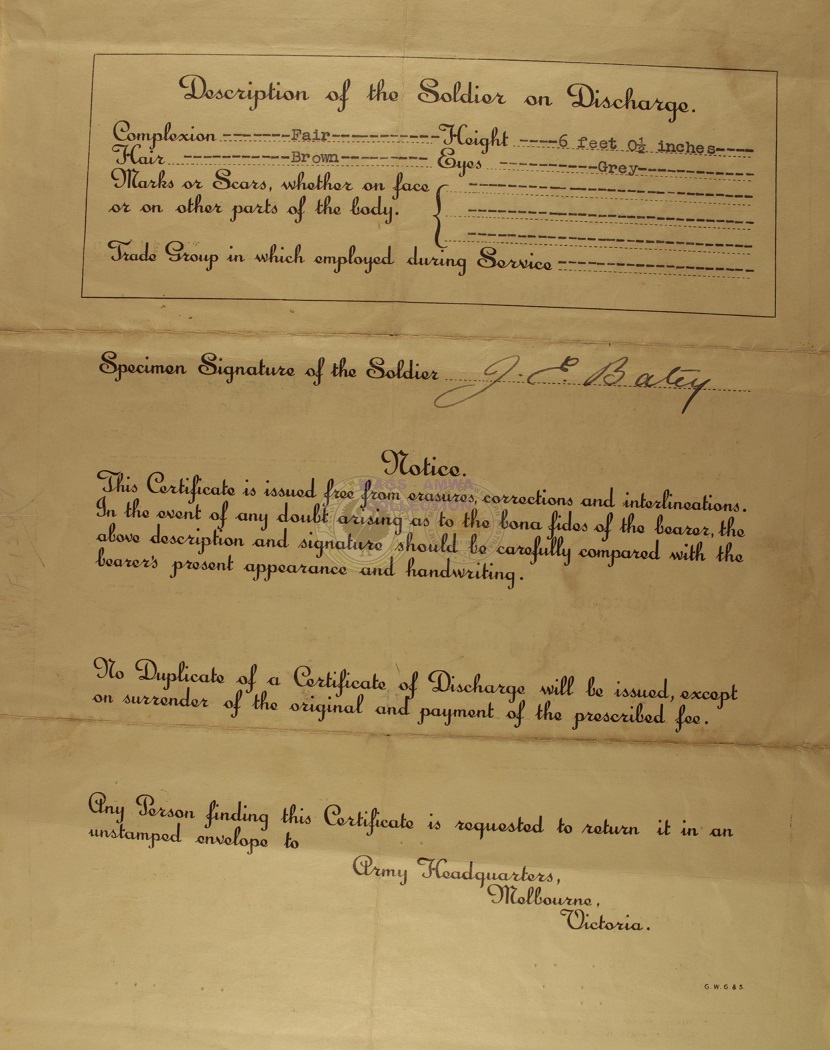 Description of the Soldier on Discharge.
Complexion -------Fair----------- Height ----6 feet 0½ inches----
Hair -----------Brown--------- Eyes ----------Grey------------
Marks or Scars, whether on face
or on other parts of the body.
Trade Group in which employed during Service --------------------
Specimen Signature of the Soldier J. E. Batey
Notice.
This Certificate is issued free from erasures, corrections and interlineations.
In the event of any doubt arising as to the bona fides of the bearer, the
above description and signature should be carefully compared with the
bearer's present appearance and handwriting.
MAGS - AMWA
COLLECTION
No Duplicate of a Certificate of Discharge will be issued, except
on surrender of the original and payment of the prescribed fee.
Any Person finding this Certificate is requested to return it in an
unstamped envelope to
Army Headquarters,
Melbourne,
Victoria.
G. W. G & S.